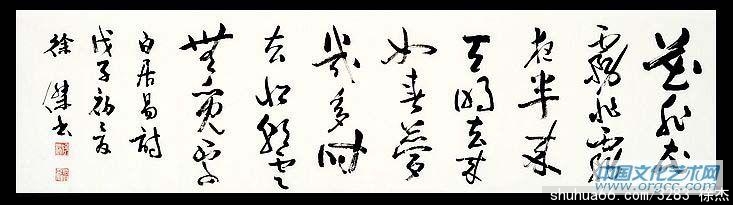 花非花
雾非雾
夜半来
天明去来
如春梦
几多时
去似朝云
无觅处
白居易诗
戊子初夏
徐杰书
中国文化艺术网
www.orgcc.com